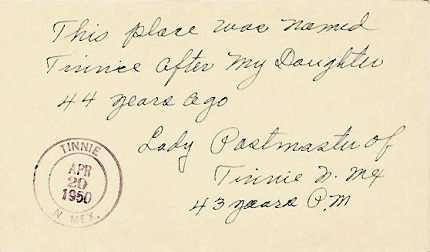 This place was named
Tinnie after My Daughter
44 years ago
Lady Postmaster of
Tinnie N. Mex
43 years P.M
TINNIE
APR
20
1950
N. MEX.